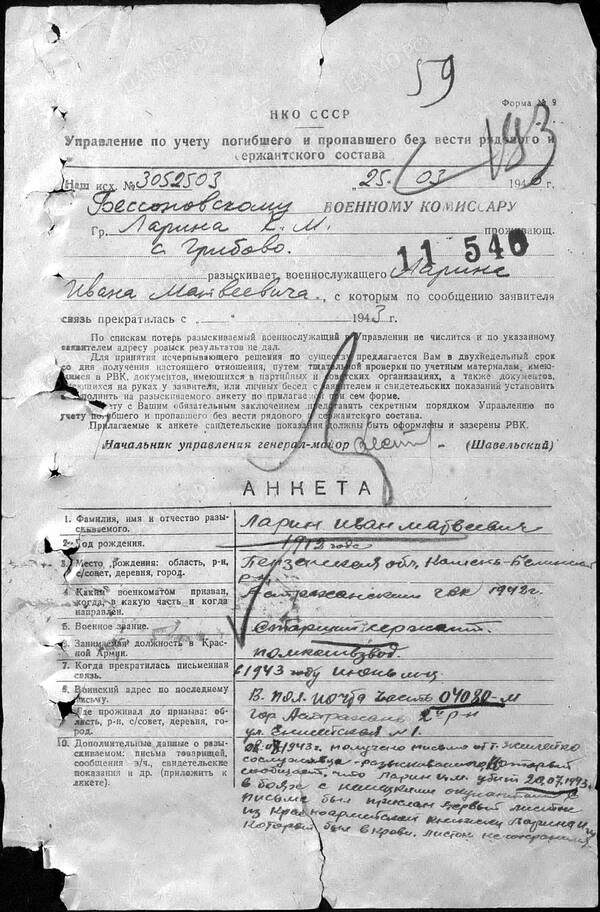 59
Форма № 9
НКО СССР
183
Управление по учету погибшего и пропавшего без вести рядового и
сержантского состава
Наш исх. № 3052503 „25“ 03 194 г.
Бессоновскому ВОЕННОМУ КОМИССАРУ
Гр. Ларина Е. М. проживающ.
с. Грибово.
11540
разыскивает, военнослужащего Ларина
Ивана Матвеевича, с которым по сообщению заявителя
связь прекратилась с 1943 г.
По спискам потерь разыскиваемый военнослужащий Управления не числится и по указанному
заявителем адресу розыск результатов не дал.
Для принятия исчерпывающего решения по существу предлагается Вам в двухнедельный срок
со дня получения настоящего отношения, путем тщательной проверки по учетным материалам, имею-
щимся в РВК, документов, имеющихся в партийных и советских организациях, а также документов,
имеющихся на руках у заявителя, или личных бесед с заявителем и свидетельских показаний установить
и заполнить на разыскиваемого анкету по прилагаемой при сем форме.
Анкету с Вашим обязательным заключением представить секретным порядком Управлению по
учету погибшего и пропавшего без вести рядового и сержантского состава.
Прилагаемые к анкете свидетельские показания должны быть оформлены и заверены РВК.
Начальник управления генерал-майор (Шавельский)
АНКЕТА
1. Фамилия, имя и отчество разы-
скиваемого.
Ларин Иван Матвеевич
2. Год рождения.
1912 года
3. Место рождения: область, р-н,
с/совет, деревня, город.
Пензенская обл. Камень-Белинский
р-н
4. Каким военкоматом призван,
когда, в какую часть и когда
направлен.
Астраханским ГВК 1942г.
5. Военное звание.
Старший сержант.
6. Занимаемая должность в Крас-
ной Армии.
помкомвзвод.
7. Когда прекратилась письменная
связь.
в 1943 году июнь м-ц
8. Воинский адрес по последнему
письму.
В. пол. почта часть 04080-м
9. Где проживал до призыва: об-
ласть, р-н, с/совет, деревня, го-
род.
гор Астрахань 2й р-н
ул. Енисейская № 1.
10. Дополнительные данные о разы-
скиваемом: письма товарищей,
сообщения э/ч., свидетельские
показания и др. (приложить к
анкете).
1943г. получено письмо от т.
сослуживца - разыскиваемого, который
сообщает, что Ларин И.М. убит 20.07.1943г.
в боях с немецкими оккупантами. С
письмом был прислан первый листок
из Красноармейской книжки Ларина И.М.
который был в крови. листок не сохранился.